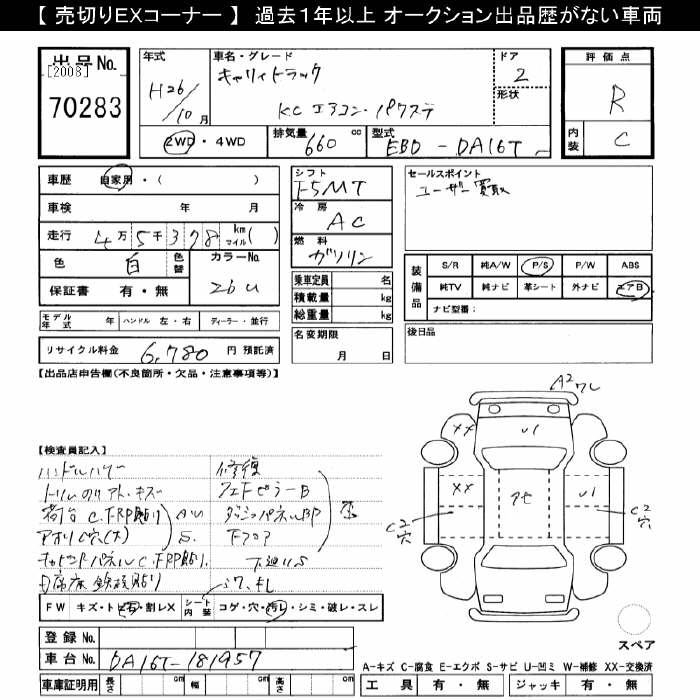 【 売切りEXコーナー 】 過去1年以上 オークション出品歴がない車両
出品No.
[2008]
70283
年式
H26/10月
車名・グレード
キャリイトラック
KC エアコン・パワステ
ドア
2
形状
評価点
R
内装
C
2WD・4WD
排気量 660 cc
型式 EBD-DA16T
車歴 自家用・( )
車検 年 月
走行 4万5千378 km マイル( )
色 白 色替
カラーNo. 26U
保証書 有・無
モデル年式 年 ハンドル 左・右 ディーラー・並行
リサイクル料金 6,780 円 預託済
シフト
F5MT
冷房
AC
燃料
ガソリン
乗車定員 名
積載量 kg
総重量 kg
名変期限
月 日
セールスポイント
ユーザー買取
装備品
S/R 純A/W P/S P/W ABS
純TV 純ナビ 革シート 外ナビ エアB
ナビ型番:
後日品
【出品店申告欄(不良箇所・欠品・注意事項等)】
【検査員記入】
ハンドル
荷台 C.FRP貼り
アオリ 穴(大)
パネルC.FRP貼り
床 鉄板貼り
修復
ダッシュパネル
Fフロア
下廻りS
シワ
A2
ワレ
XX
U1
XX
アセ
U1
C2
穴
C2
穴
FW キズ・トビ石・割レX
シート内装 コゲ・穴・汚レ・シミ・破レ・スレ
登録 No.
車台 No. DA16T-181957
車庫証明用 長さ cm 幅 cm 高さ cm
スペア
A-キズ C-腐食 E-エクボ S-サビ U-凹ミ W-補修 XX-交換済
工具 有・無 ジャッキ 有・無